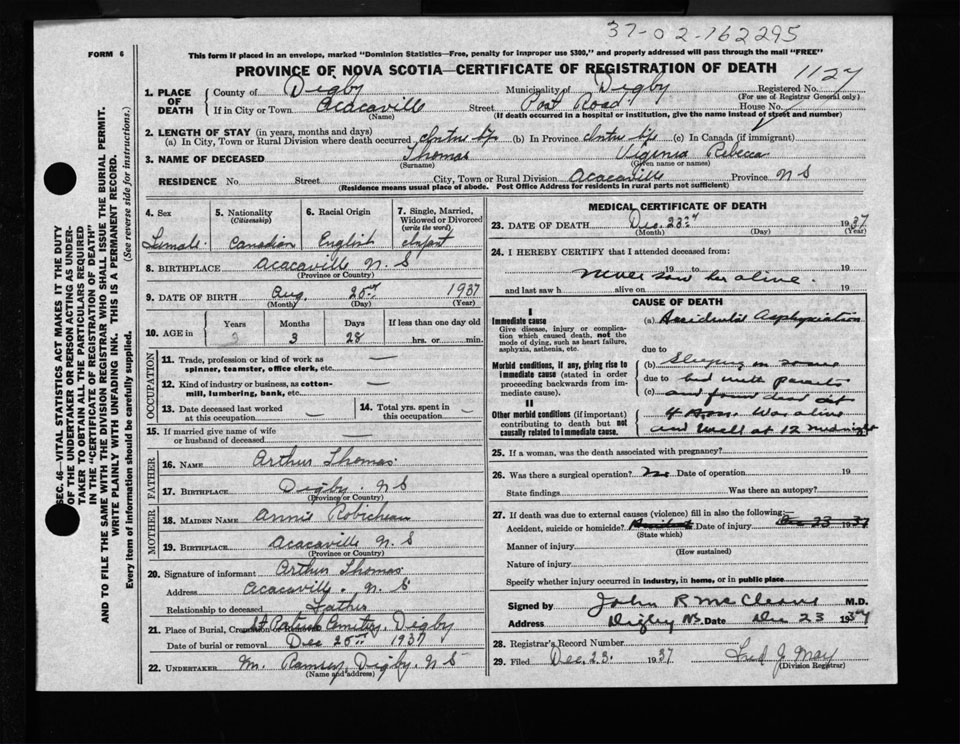 37-02-762295
FORM 6
This form if placed in an envelope, marked "Dominion Statistics—Free, penalty for improper use $300," and properly addressed will pass through the mail "FREE"
PROVINCE OF NOVA SCOTIA—CERTIFICATE OF REGISTRATION OF DEATH
1127
1. PLACE OF DEATH
County of Digby Municipality of Digby Registered No.
(For use of Registrar General only)
If in City or Town Acacaville Street Post Road House No.
(Name) (If death occurred in a hospital or institution, give the name instead of street and number)
2. LENGTH OF STAY (in years, months and days)
(a) In City, Town or Rural Division where death occurred entire life (b) In Province entire life (c) In Canada (if immigrant)
3. NAME OF DECEASED Thomas Viginia Rebecca
(Surname) (Given name or names)
RESIDENCE No. Street City, Town or Rural Division Acacaville Province N S
(Residence means usual place of abode. Post Office Address for residents in rural parts not sufficient)
SEC. 46—VITAL STATISTICS ACT MAKES IT THE DUTY
OF THE UNDERTAKER OR PERSON ACTING AS UNDER-
TAKER TO OBTAIN ALL THE PARTICULARS REQUIRED
IN THE "CERTIFICATE OF REGISTRATION OF DEATH"
AND TO FILE THE SAME WITH THE DIVISION REGISTRAR WHO SHALL ISSUE THE BURIAL PERMIT.
WRITE PLAINLY WITH UNFADING INK. THIS IS A PERMANENT RECORD.
Every item of information should be carefully supplied. (See reverse side for instructions.)
4. Sex
Female
5. Nationality
(Citizenship)
Canadian
6. Racial Origin
English
7. Single, Married,
Widowed or Divorced
(write the word)
Infant
8. BIRTHPLACE Acacaville N. S
(Province or Country)
9. DATE OF BIRTH Aug. 25th 1937
(Month) (Day) (Year)
10. AGE in
Years Months Days If less than one day old
3 28 hrs. or min.
OCCUPATION
11. Trade, profession or kind of work as
spinner, teamster, office clerk, etc. —
12. Kind of industry or business, as cotton-
mill, lumbering, bank, etc. —
13. Date deceased last worked
at this occupation —
14. Total yrs. spent in
this occupation —
15. If married give name of wife
or husband of deceased —
FATHER
16. NAME Arthur Thomas
17. BIRTHPLACE Digby. N S
(Province or Country)
MOTHER
18. MAIDEN NAME Annie Robicheau
19. BIRTHPLACE Acacaville N. S
(Province or Country)
20. Signature of informant Arthur Thomas
Address Acacaville. N. S
Relationship to deceased Father
21. Place of Burial, Cremation or Removal St Patrick Cemitery. Digby
Date of burial or removal Dec 25th 1937
22. UNDERTAKER Wm. Ramsey, Digby. N S
(Name and address)
MEDICAL CERTIFICATE OF DEATH
23. DATE OF DEATH Dec. 23rd 1937
(Month) (Day) (Year)
24. I HEREBY CERTIFY that I attended deceased from:
19 to 19
never saw her alive.
and last saw h alive on 19
CAUSE OF DEATH
I
Immediate cause
Give disease, injury or complica-
tion which caused death, not the
mode of dying, such as heart failure,
asphyxia, asthenia, etc.
Morbid conditions, if any, giving rise to
immediate cause (stated in order
proceeding backwards from im-
mediate cause).
II
Other morbid conditions (if important)
contributing to death but not
causally related to immediate cause.
(a) Accidental Asphyxiation
due to
(b) Sleeping in same
due to bed with parents
(c) and found dead at
4 A.m. Was alive
and well at 12 midnight
25. If a woman, was the death associated with pregnancy?
26. Was there a surgical operation? no Date of operation 19
State findings Was there an autopsy?
27. If death was due to external causes (violence) fill in also the following:
Accident, suicide or homicide? Accident Date of injury Dec 23 1937
(State which)
Manner of injury
(How sustained)
Nature of injury
Specify whether injury occurred in industry, in home, or in public place
Signed by John R McCleave M.D.
Address Digby NS. Date Dec 23 1937
28. Registrar's Record Number
29. Filed Dec. 23. 1937 Fred J. May
(Division Registrar)